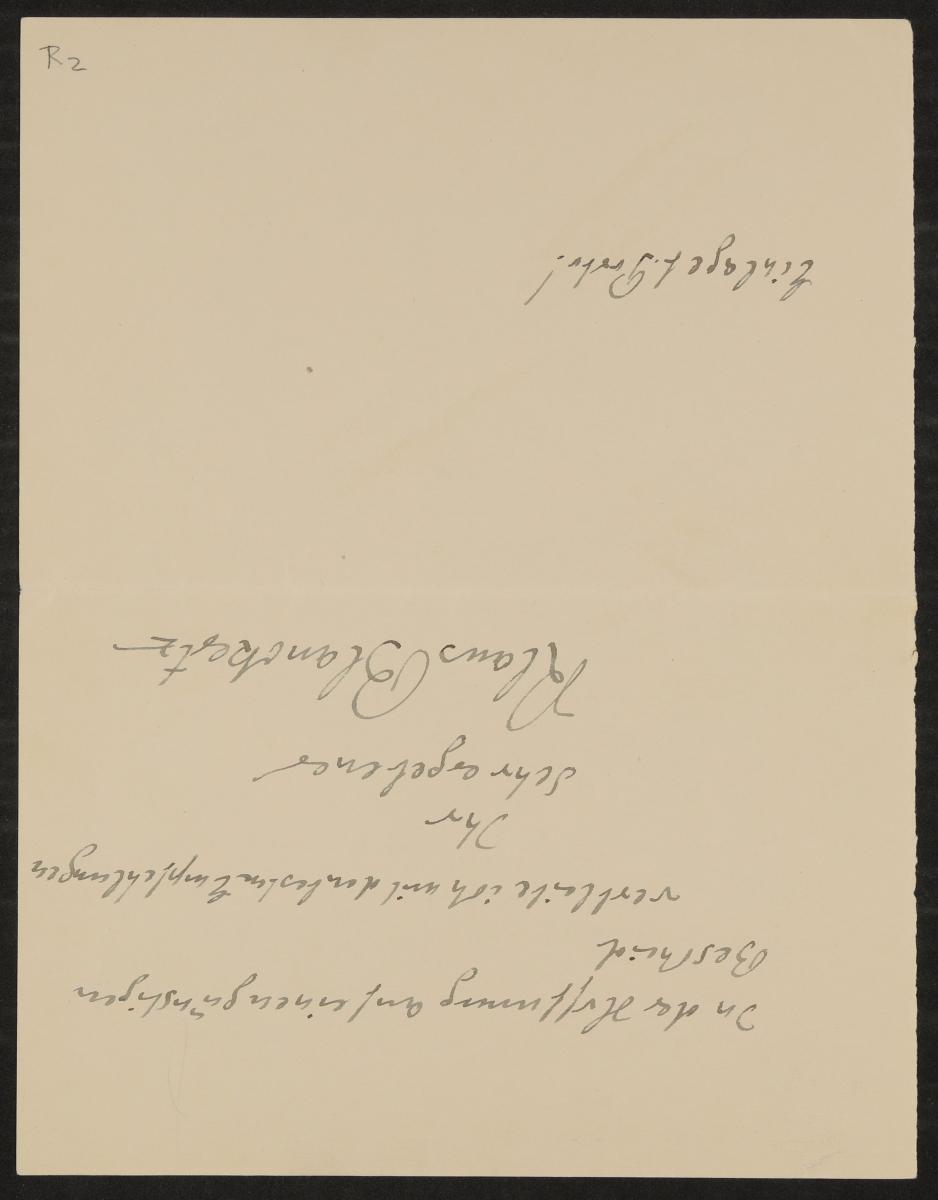 In der Hoffnung auf einen günstigen
Bescheid
verbleibe ich mit den besten Empfehlungen
Ihr
sehr ergebener
Klaus Blanckertz
Einlage f. Porto!
R2